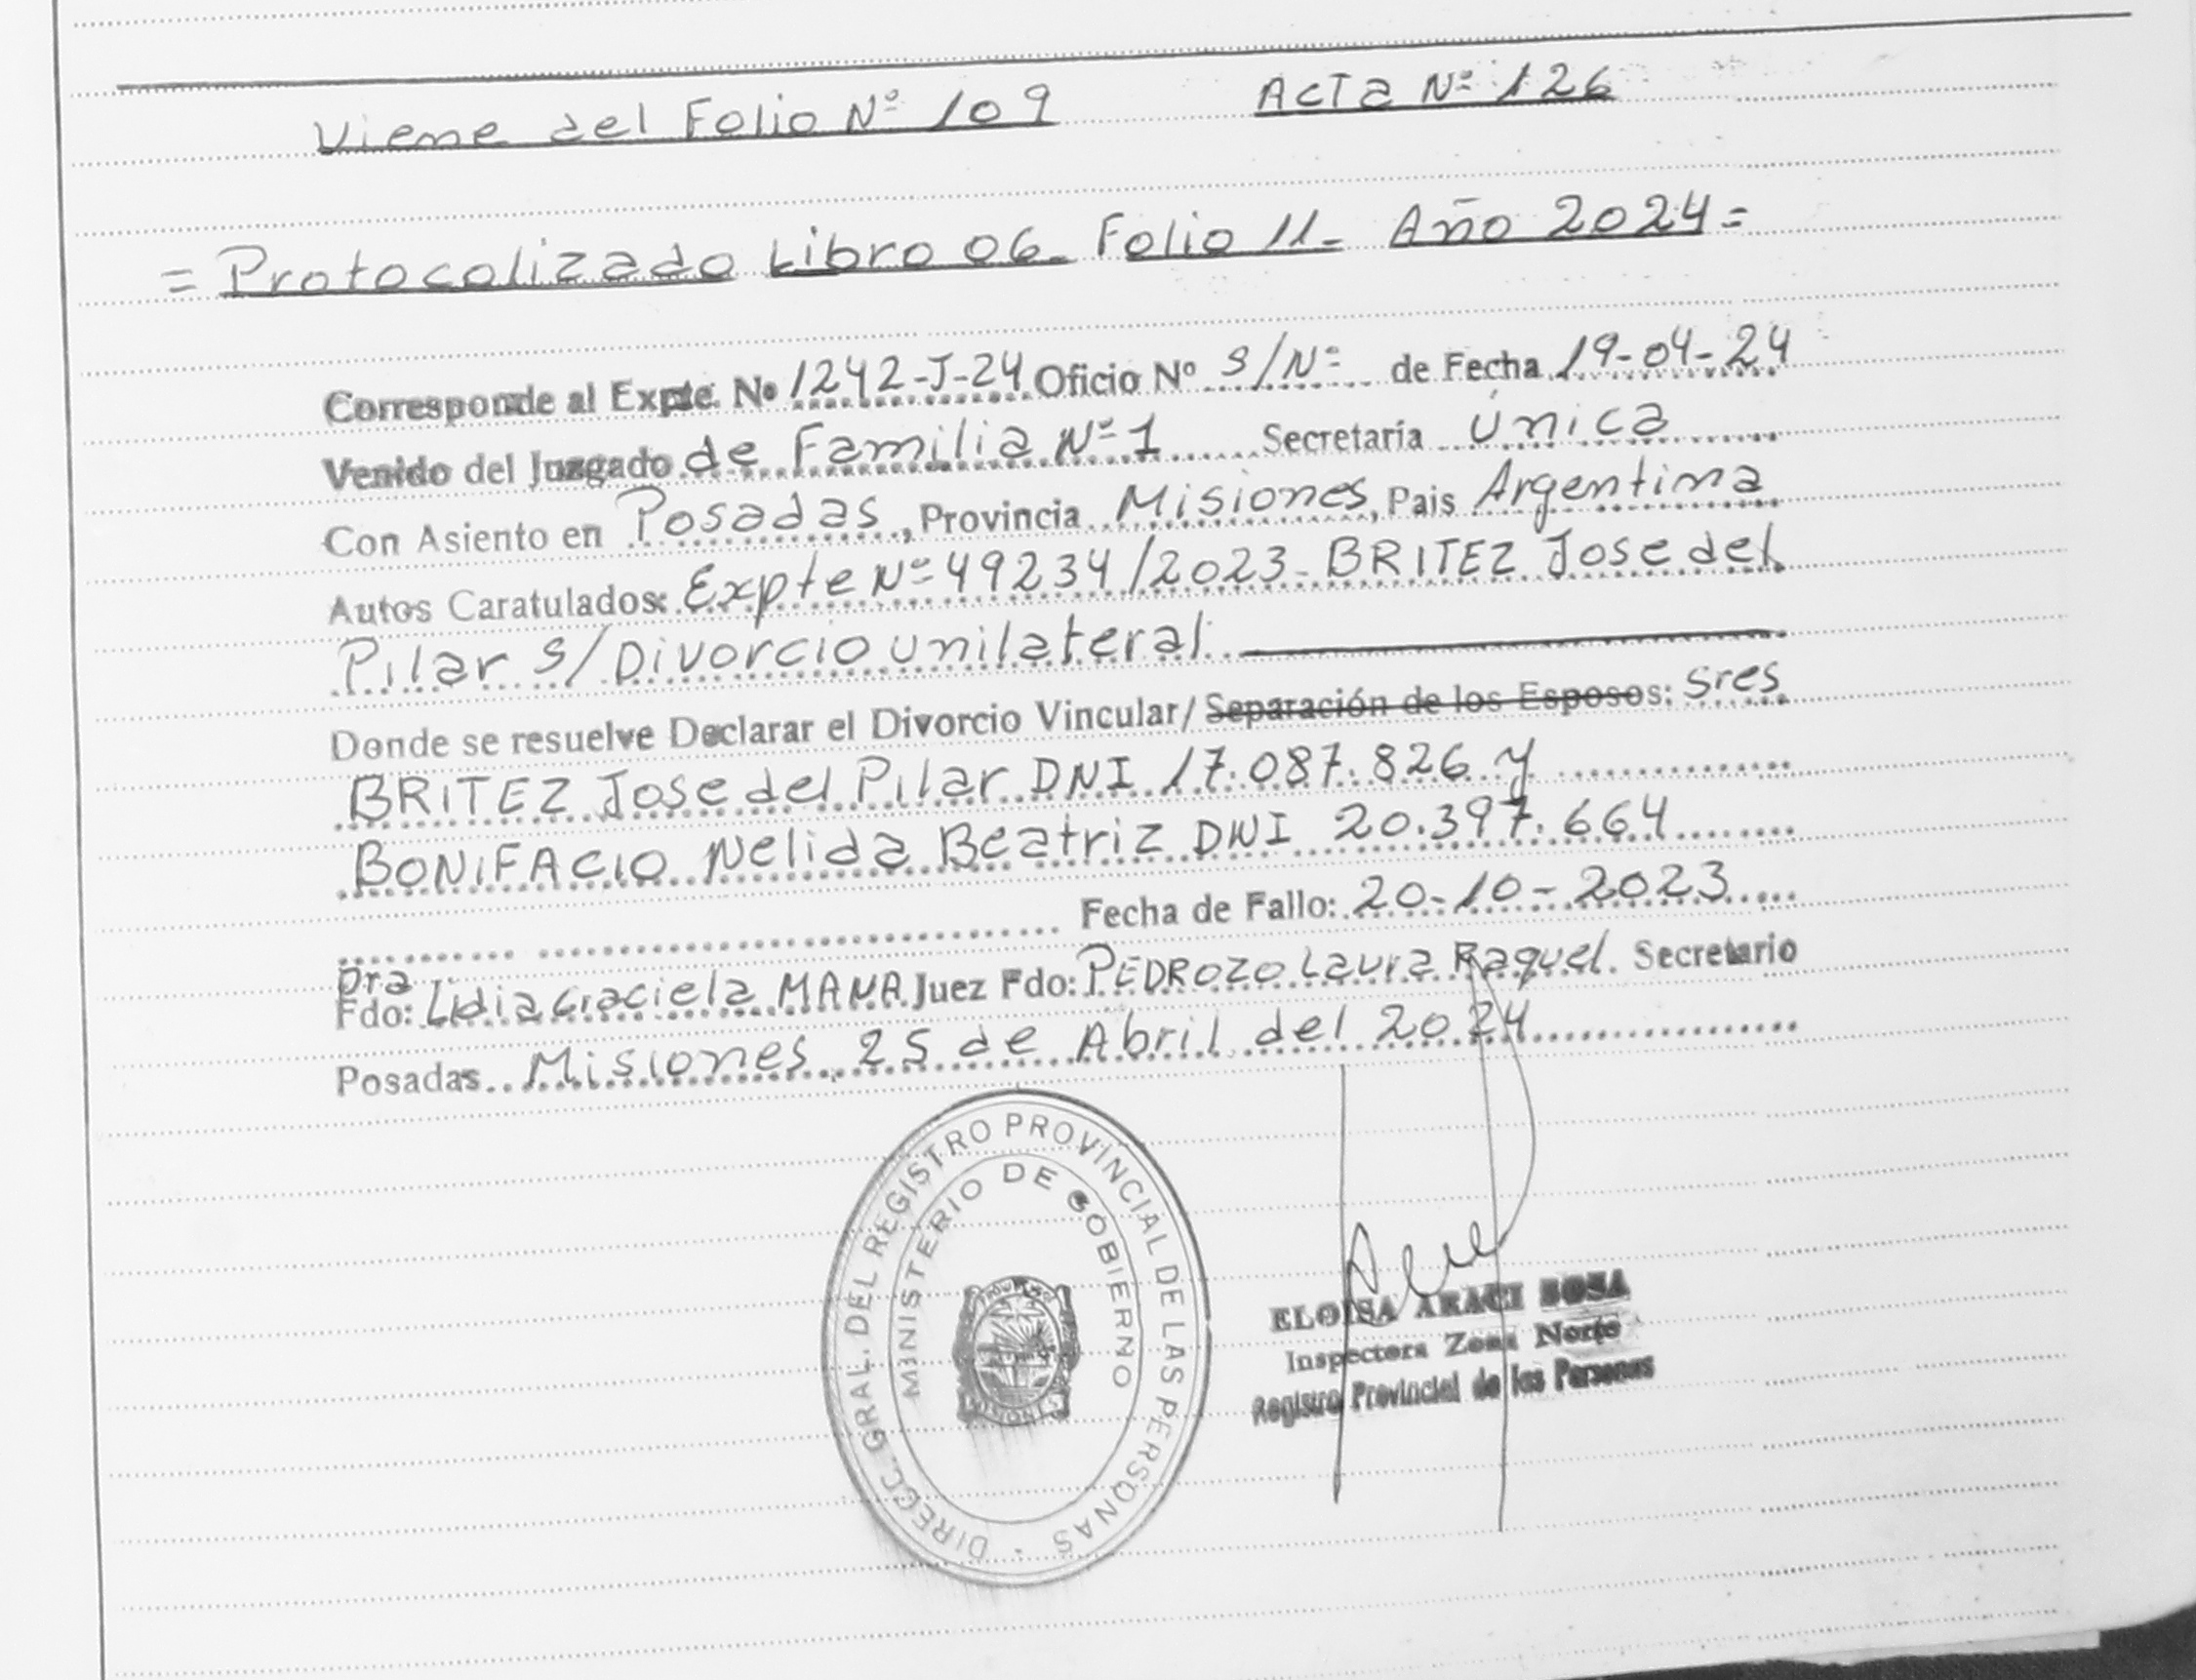 Viene del Folio Nº 109 Acta Nº 126
= Protocolizado Libro 06- Folio 11- Año 2024 =
Corresponde al Expte. Nº 1242-J-24 Oficio Nº S/Nº de Fecha 19-04-24
Venido del Juzgado de Familia Nº 1 Secretaría Única
Con Asiento en Posadas, Provincia Misiones, Pais Argentina
Autos Caratulados: Expte Nº 49234/2023- BRITEZ Jose del
Pilar S/Divorcio unilateral
Donde se resuelve Declarar el Divorcio Vincular/ Separación de los Esposos: Sres
BRITEZ Jose del Pilar DNI 17.087.826 y
BONIFACIO Nelida Beatriz DNI 20.397.664
Fecha de Fallo: 20-10-2023
Dra
Fdo: Lidia Graciela MANA Juez Fdo: PEDROZO Laura Raquel. Secretario
Posadas Misiones, 25 de Abril del 2024
DIRECC. GRAL. DEL REGISTRO PROVINCIAL DE LAS PERSONAS
MINISTERIO DE GOBIERNO
MISIONES
ELOISA ARACI SOSA
Inspectora Zona Norte
Registro Provincial de las Personas